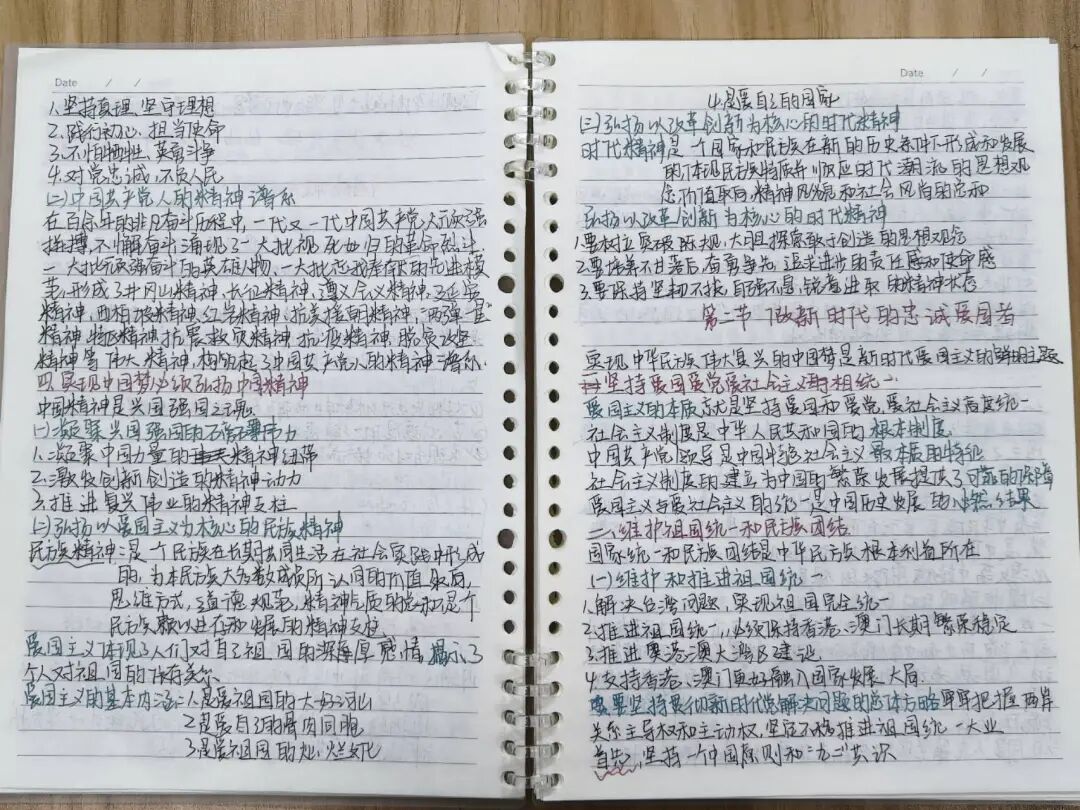 Date / /
1.坚持真理、坚守理想
2.践行初心、担当使命
3.不怕牺牲、英勇斗争
4.对党忠诚、不负人民
(二)中国共产党人的精神谱系
在百余年的非凡奋斗历程中,一代又一代中国共产党人顽强
拼搏,不懈奋斗涌现了一大批视死如归的革命烈士、
一大批顽强奋斗的英雄人物、一大批忘我奉献的先进模
范,形成了井冈山精神、长征精神、遵义会议精神、延安
精神、西柏坡精神、红岩精神、抗美援朝精神、"两弹一星"
精神、特区精神、抗震救灾精神、抗疫精神、脱贫攻坚
精神等伟大精神,构筑起了中国共产党人的精神谱系.
四.实现中国梦必须弘扬中国精神
中国精神是兴国强国之魂
(一)凝聚兴国强国的
1.凝聚中国力量的精神纽带
2.激发创新创造的精神动力
3.推进复兴伟业的精神支柱
(二)弘扬以爱国主义为核心的民族精神
民族精神:是一个民族在长期共同生活在社会实践中形成
的,为本民族大多数成员所认同的价值取向,
思维方式,道德规范,精神气质的总和,是个
民族赖以生存和发展的精神支柱
爱国主义体现了人们对自己祖国的深厚感情,揭示了
个人对祖国的依存关系
爱国主义的基本内涵:1.是爱祖国的大好河山
2.是爱自己的骨肉同胞
3.是爱祖国的灿烂文化
Date / /
4.是爱自己的国家
(三)弘扬以改革创新为核心的时代精神
时代精神是一个国家和民族在新的历史条件下形成和发展
的,体现民族特质并顺应时代潮流的思想观
念价值取向、精神风貌和社会风尚的总和
弘扬以改革创新为核心的时代精神
1.要树立突破陈规、大胆探索敢于创造的思想观念
2.要培养不甘落后、奋勇争先、追求进步的责任感和使命感
3.要保持坚韧不拔、自强不息、锐意进取的精神状态
第二节 做新时代的忠诚爱国者
实现中华民族伟大复兴的中国梦是新时代爱国主义的鲜明主题
一.坚持爱国爱党爱社会主义相统一.
爱国主义的本质就是坚持爱国和爱党、爱社会主义高度统一
社会主义制度是中华人民共和国的根本制度.
中国共产党领导是中国特色社会主义最本质的特征
社会主义制度的建立为中国的繁荣发展提供了可靠的保障
爱国主义与爱社会主义的统一是中国历史发展的必然结果
二.维护祖国统一和民族团结
国家统一和民族团结是中华民族根本利益所在
(一)维护和推进祖国统一
1.解决台湾问题,实现祖国完全统一
2.推进祖国统一,必须保持香港、澳门长期繁荣稳定
3.推进粤港澳大湾区建设
4.支持香港、澳门更好融入国家发展大局
要坚持贯彻新时代党解决问题的总体方略牢牢把握两岸
关系主导权和主动权,坚定不移推进祖国统一大业
首先,坚持一个中国原则和"九二"共识